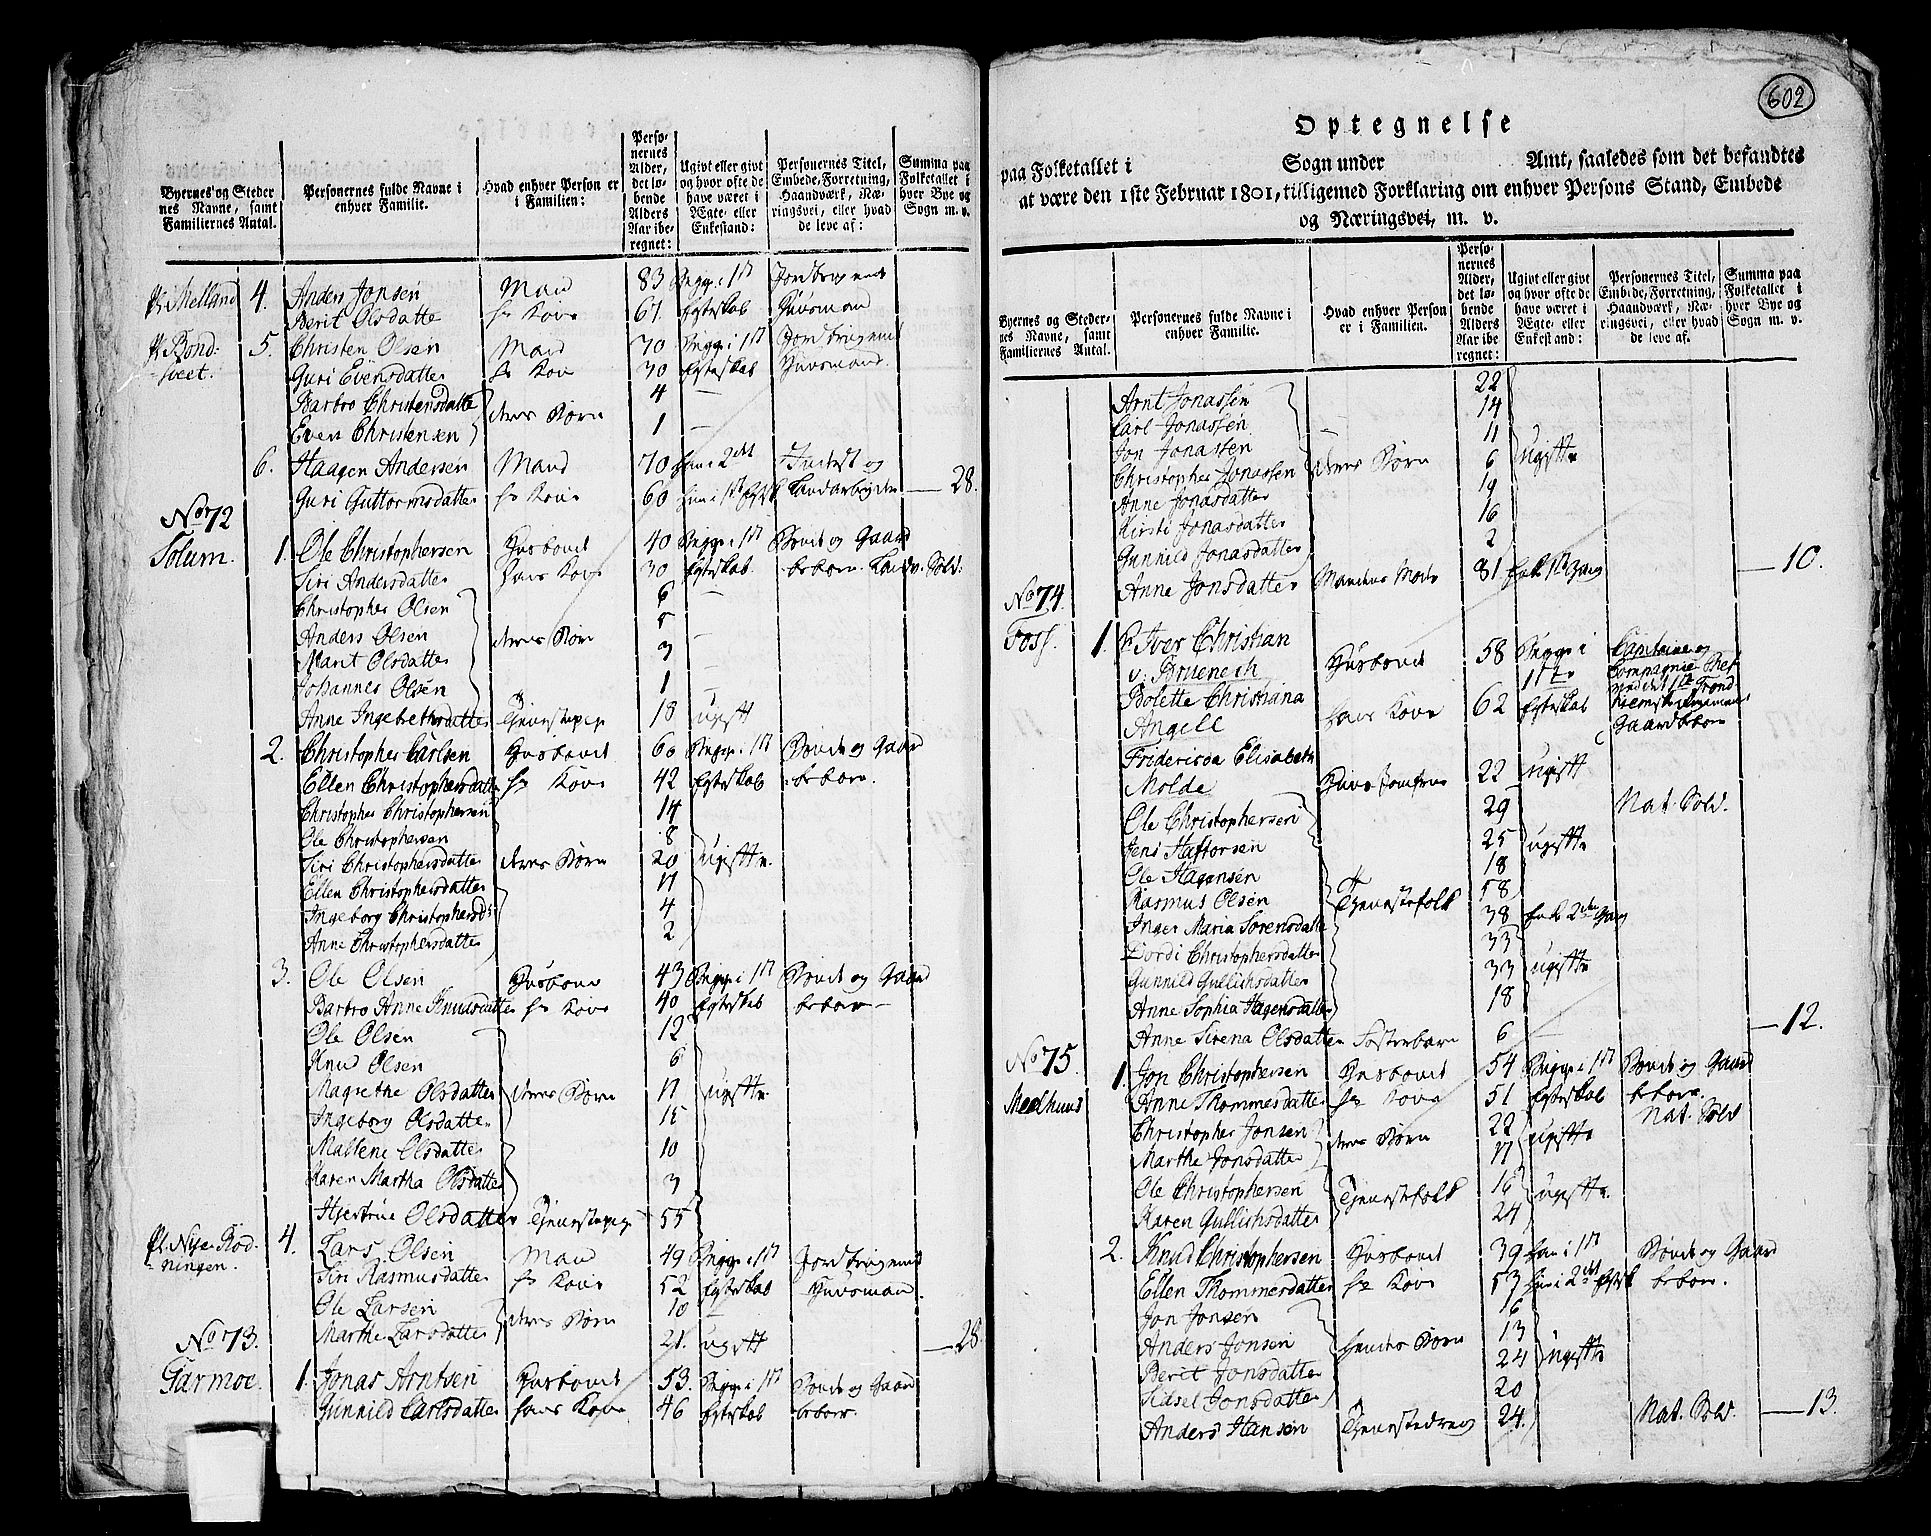 Byernes og Steder nes Navne, samt Familiernes Antal.
Personernes fulde Navne i enhver Familie.
Hvad enhver Person er i Familien:
Personernes Alder, det løbende Alders Aar iberegnet:
Ugivt eller givt og hvor ofte de have været i Ægte- eller Enkestand:
Personernes Titel, Embede, Forretning, Haandværk, Næringsvei, eller hvad de leve af:
Summa paa Folketallet i hver Bye og Sogn m. v.
Pl. Melland 4. Anders Jonsen Mand 83 Begge i 1st Jordbrugende
Berit Olsdatte hs Kone 61. Egteskab Huusmand
Pl. Bond- 5. Christen Olsen Mand 70 Begge i 1st Jordbrugend
-sveet. Guri Evensdatter hs Kone 30 Egteskab Huusmand.
Barbro Christensdatte 4 —
Even Christensen deres Børn 1 —
6. Haagen Andersen Mand 70 han i 2det Inderst og
Guri Guttormsdatter hs Kone 60 hun i 1st Egtsk. Landarbejder — 28.
No 72
Solum. 1. Ole Christophersen Husbond 40 Begge i 1st Bonde og Gaard
Siri Andersdatter Hans Kone 30 Egteskab. beboer. Landv. Sold:
Christopher Olsen 6 —
Anders Olsen deres Børn 5
Marit Olsdatter 3 —
Johannes Olsen 1 —
Anne Ingebrethsdatter Tjenestepige 18 ugift
2. Christopher Carlsen Husbond 60 Begge i 1st Bonde og Gaard
Ellen Christophersdatter hs Kone 42 Egteskab beboer.
Christopher Christophersen 14
Ole Christophersen 8
Siri Christophersdatter deres Børn 20 ugifte
Ellen Christophersdatter 17
Ingeborg Christophersd: 4
Anne Christophersdatter 2
3. Ole Olsen Husbond 43 Begge i 1st Bonde og Gaard
Barbro Anne Knudsdatter hs Kone 40 Egteskab beboer —
Ole Olsen 12
Knud Olsen 6
Magrethe Olsdatter deres Børn 17 ugifte
Ingeborg Olsdatter 15
Mallene Olsdatter 10
Karen Martha Olsdatter 3
Olsdatter Tjenestepige 55
Pl. Nye Rød- 4. Lars Olsen Mand 49 Begge i 1st Jordbrugende
-ningen. Siri Rasmusdatter hs Kone 52 Egteskab Huusmand.
Ole Larsen deres Børn 10 —
Marthe Larsdatter 21. ugift — 28.
No 73.
Garmoe. 1. Jonas Arntsen Husbond 53. Begge i 1st Bonde og Gaard
Gunnild Carlsdatter hans Kone 46 Egteskab beboer.
602
Optegnelse
paa Folketallet i Sogn under Amt, saaledes som det befandtes
at være den 1ste Februar 1801, tilligemed Forklaring om enhver Persons Stand, Embede
og Næringsvei, m. v.
Byernes og Stedernes Navne, samt Familiernes Antal.
Personernes fulde Navne i enhver Familie.
Hvad enhver Person er i Familien.
Personernes Alder, det løbende Alders Aar iberegnet:
Ugivt eller givt og hvor ofte de have været i Ægte- eller Enkestand:
Personernes Titel, Embede, Forretning, Haandværk, Næringsvei, eller hvad de leve af.
Summa paa Folketallet i hver Bye og Sogn m. v.
Arnt Jonassen 22
Carl Jonassen 14
Jon Jonassen 11
Christopher Jonassen deres Børn 6 ugifte
Anne Jonasdatter 19
Kirsti Jonasdatter 16
Gunnild Jonasdatter 2
Anne Jonsdatter Mandens Moder 81 Enke 1st Gang — 10.
No 74.
Foss. 1. Hr Iver Christian
v: Bruenech Husbond 58 Begge i 1ste Capitaine og Compagnie Chef ved det 1ste Trond-
Bolette Christiana
Angell hans Kone 62 Egteskab Gaardbeboer
Fridericia Elisabeth
Molde Huus Jomfrue 22 ugift
Ole Christophersen 29 Nat. Sold.
Jens Haftorsen 25 ugifte
Ole Hagensen 18
Rasmus Olsen Tjenestefolk 58
Inger Maria Sørensdatter 38 Enke 2den Gang
Dordi Christophersdatter 33
Gunnild Gullichsdatter 33 ugifte
Anne Sophia Hagensdatter 18
Anne Sirena Olsdatter Fosterbarn 6 — — 12.
No 75.
Meelhuus 1. Jon Christophersen Husbond 54 Begge i 1st Bonde og Gaard
Anne Thommesdatter hs Kone 51 Egteskab beboer.
Christopher Jonsen deres Børn 22 ugifte Nat. Sold
Marthe Jonsdatter 17
Ole Christophersen Tjenestefolk 16 ugifte
Karen Gullichsdatter 24
2. Knud Christophersen Husbond 39 han i 1st Bonde og Gaard
Ellen Thommesdatter hs Kone 53 hun i 2det Egtsk beboer.
Jon Jonsen 16
Anders Jonsen hendes Børn 13
Berit Jonsdatter 24 ugifte
Sidsel Jonsdatter 20
Anders Hansen Tjenestedreng 24. Nat. Sold. — 13.